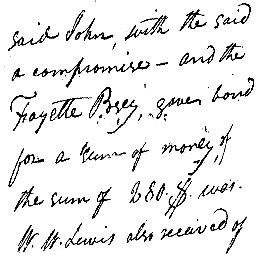 said John, with the said
a compromise - and the
Fayette Posey, gave bond
for a sum of money, of
the sum of 280.$. was.
W. W. Lewis also received of